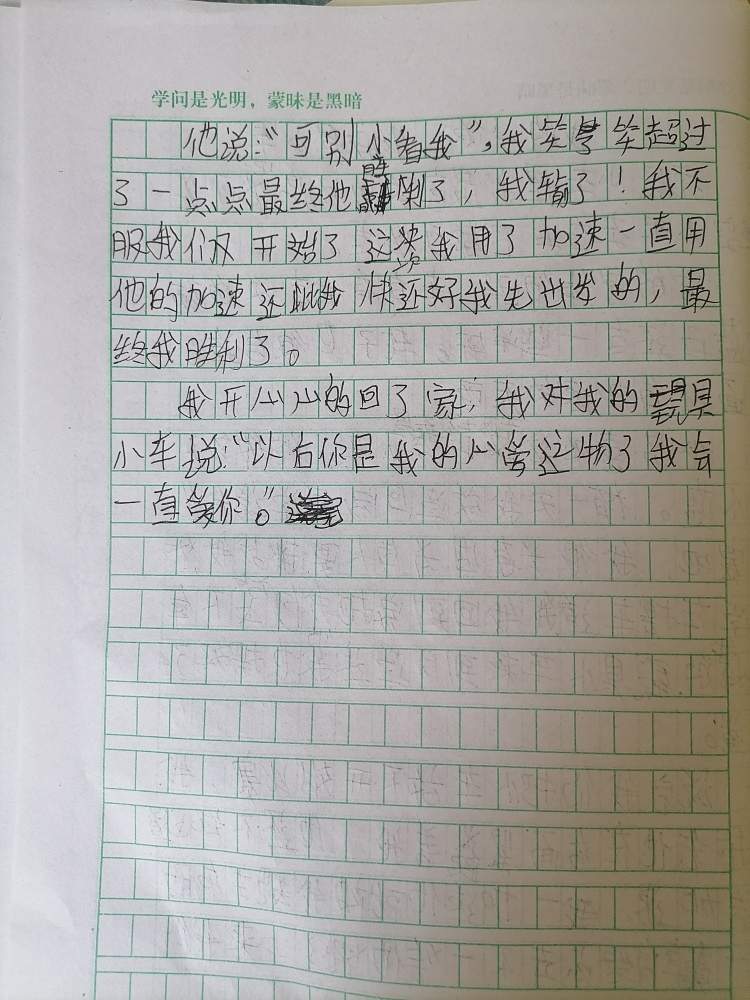 学问是光明，蒙昧是黑暗
他说：“可别小看我”，我笑了笑超过
了一点点最终他胜利了，我输了！我不
服我们又开始了这次我用了加速一直用
他的加速还比我快还好我先出发的，最
终我胜利了。
我开心心的回了家，我对我的玩具
小车说：“以后你是我的心爱之物了我会
一直爱你。”